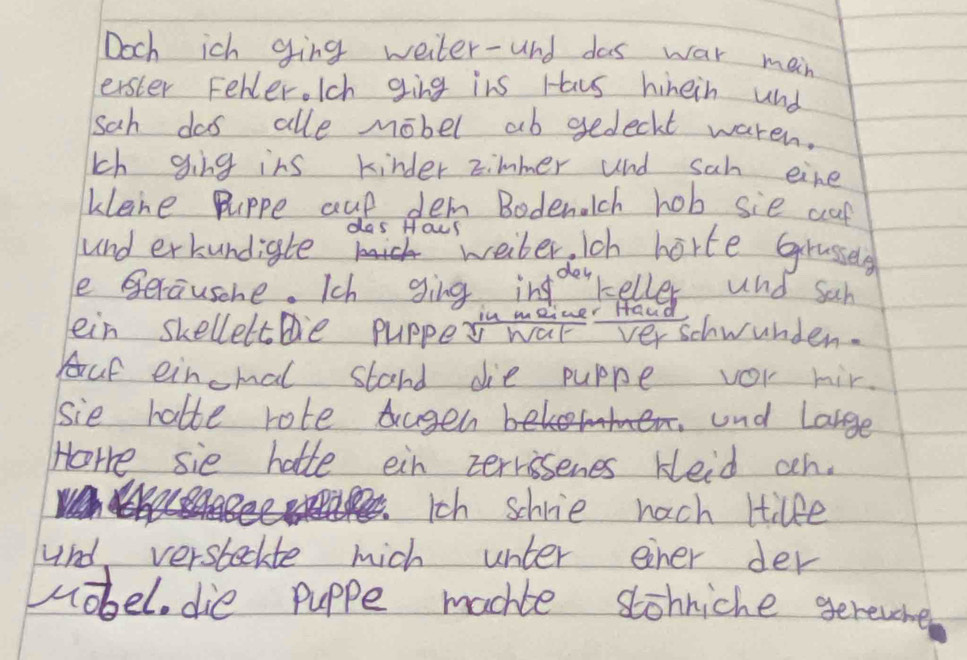 Doch ich ging weiter - und das war mein
erster Fehler. Ich ging ins Haus hinein und
sah das alle Möbel ab gedeckt waren.
Ich ging ins Kinder zimmer und sah eine
kleine Puppe auf dem Boden. Ich hob sie auf
das Haus
und erkundigte mich weiter. Ich hörte Grusselig
e Geräusche. Ich ging ins den keller und sah
in meiner Hand
ein skellett. Die Puppe war verschwunden.
Auf einmal stand die Puppe vor mir.
Sie hatte rote Augen bekommen. und Lange
Harre sie hatte ein zerrissenes Kleid an.
Ich schrie nach Hilfe
und versteckte mich unter einer der
Möbel. die Puppe machte stöhniche gereuche.